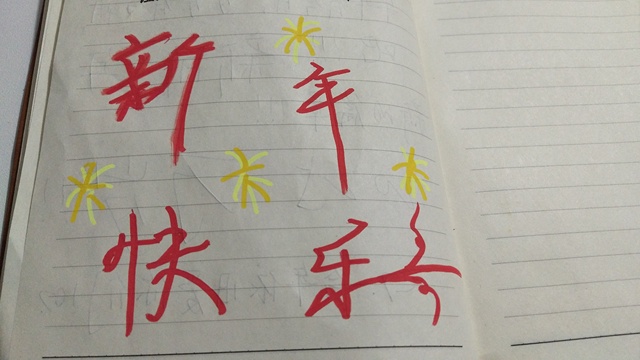 新年
快乐